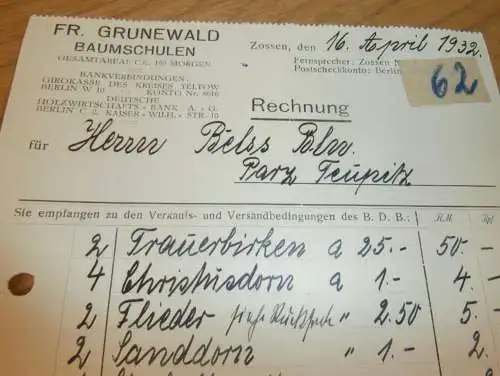 FR. GRUNEWALD
BAUMSCHULEN
GESAMTAREAL CA. 160 MORGEN
BANKVERBINDUNGEN:
GIROKASSE DES KREISES TELTOW
BERLIN W 10 KONTO Nr. 8616
DEUTSCHE
HOLZWIRTSCHAFTS-BANK A.-G.
BERLIN C 2, KAISER-WILH.-STR. 10
Zossen, den 16. April 1932.
Fernsprecher: Zossen N
Postscheckkonto: Berlin
62
Rechnung
für Herrn Belss Bln.
Parz Teupitz
Sie empfangen zu den Verkaufs- und Versandbedingungen des B. D. B.: RM. Rpf.
2 Trauerbirken a 25.- 50.-
4 Christusdorn a 1.- 4.-
2 Flieder " 2.50 5.-
2 Sanddorn " 1.- 2.